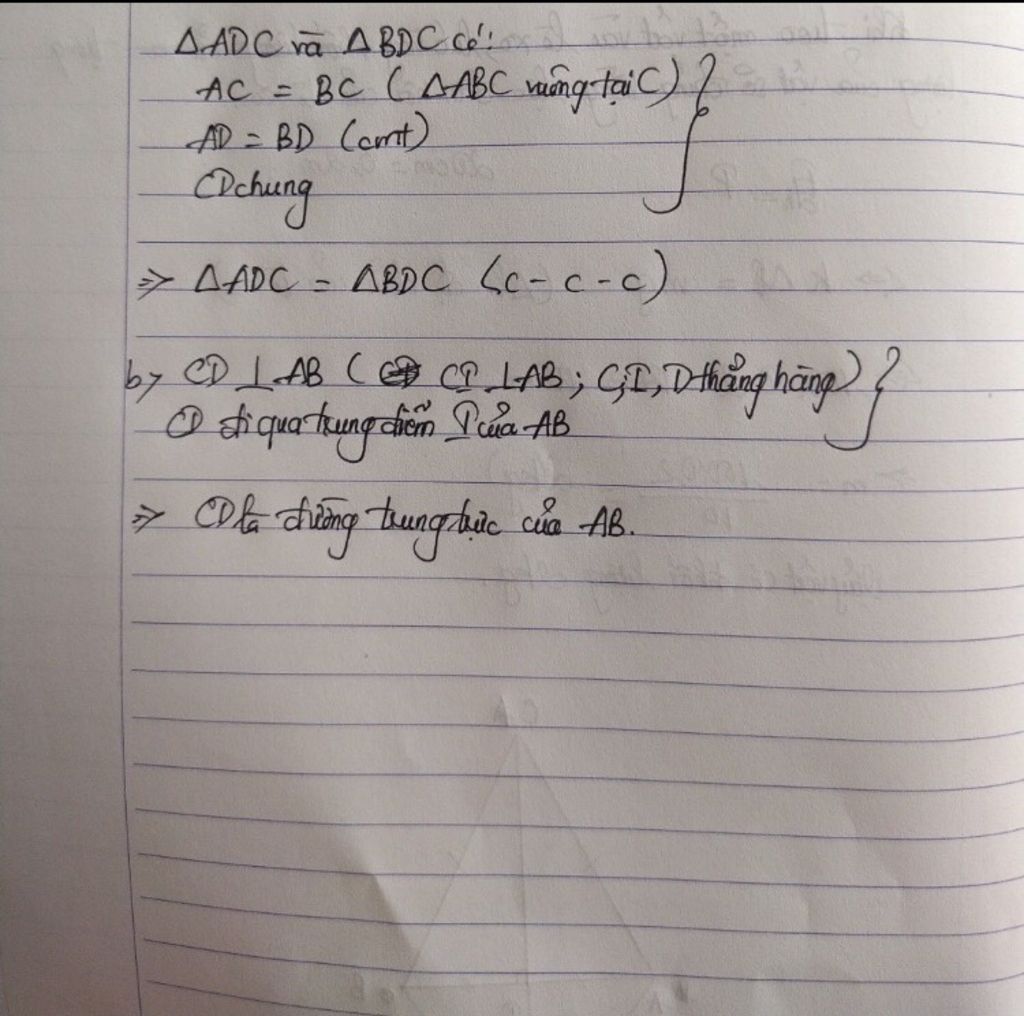 ΔADC và ΔBDC có:
AC = BC (ΔABC vuông tại C)
AD = BD (cmt)
CD chung
=> ΔADC = ΔBDC (c - c - c)
b, CD ⊥ AB ( CI ⊥ AB ; C, I, D thẳng hàng)
CD đi qua trung điểm I của AB
=> CD là đường trung trực của AB.